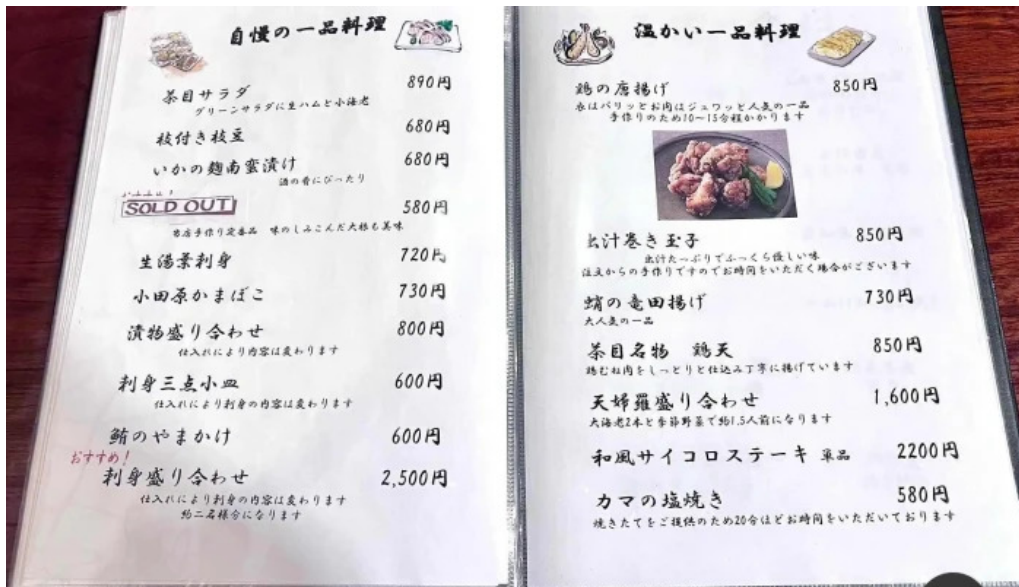 自慢の一品料理
茶目サラダ 890円
グリーンサラダに生ハムと小海老
枝付き枝豆 680円
いかの麹南蛮漬け 680円
酒の肴にぴったり
SOLD OUT 580円
当店手作り定番品 味のしみこんだ大根も美味
生湯葉刺身 720円
小田原かまぼこ 730円
漬物盛り合わせ 800円
仕入れにより内容は変わります
刺身三点小皿 600円
仕入れにより刺身の内容は変わります
鮪のやまかけ 600円
おすすめ!
刺身盛り合わせ 2,500円
仕入れにより刺身の内容は変わります
約二名様分になります
温かい一品料理
鶏の唐揚げ 850円
衣はパリッとお肉はジュワッと人気の一品
手作りのため10~15分程かかります
出汁巻き玉子 850円
出汁たっぷりでふっくら優しい味
注文からの手作りですのでお時間をいただく場合がございます
蛸の竜田揚げ 730円
大人気の一品
茶目名物 鶏天 850円
鶏むね肉をしっとりと仕込み丁寧に揚げています
天婦羅盛り合わせ 1,600円
大海老2本と季節野菜で約1.5人前になります
和風サイコロステーキ 単品 2200円
カマの塩焼き 580円
焼きたてをご提供のため20分ほどお時間をいただいております